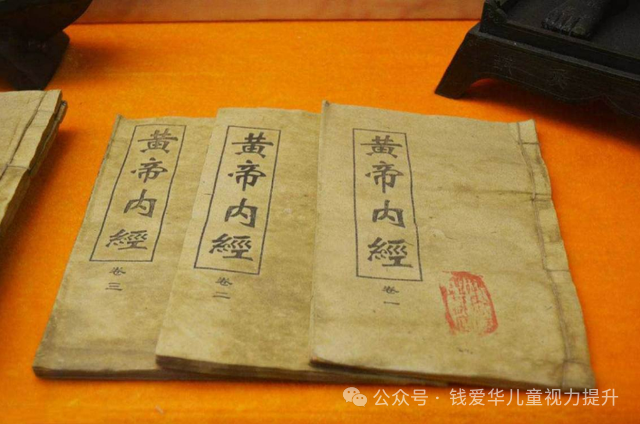 黃帝内經
卷三
黃帝内經
卷二
黃帝内經
卷一
公众号·钱爱华儿童视力提升